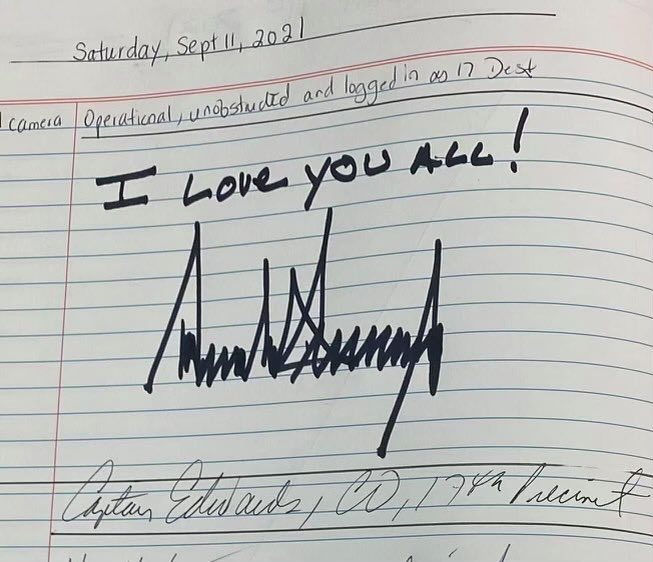 Saturday, Sept 11, 2021
camera
Operational, unobstructed and logged in as 17 Dest
I LOVE YOU ALL!
Captain Edwards, CO, 17th Precinct